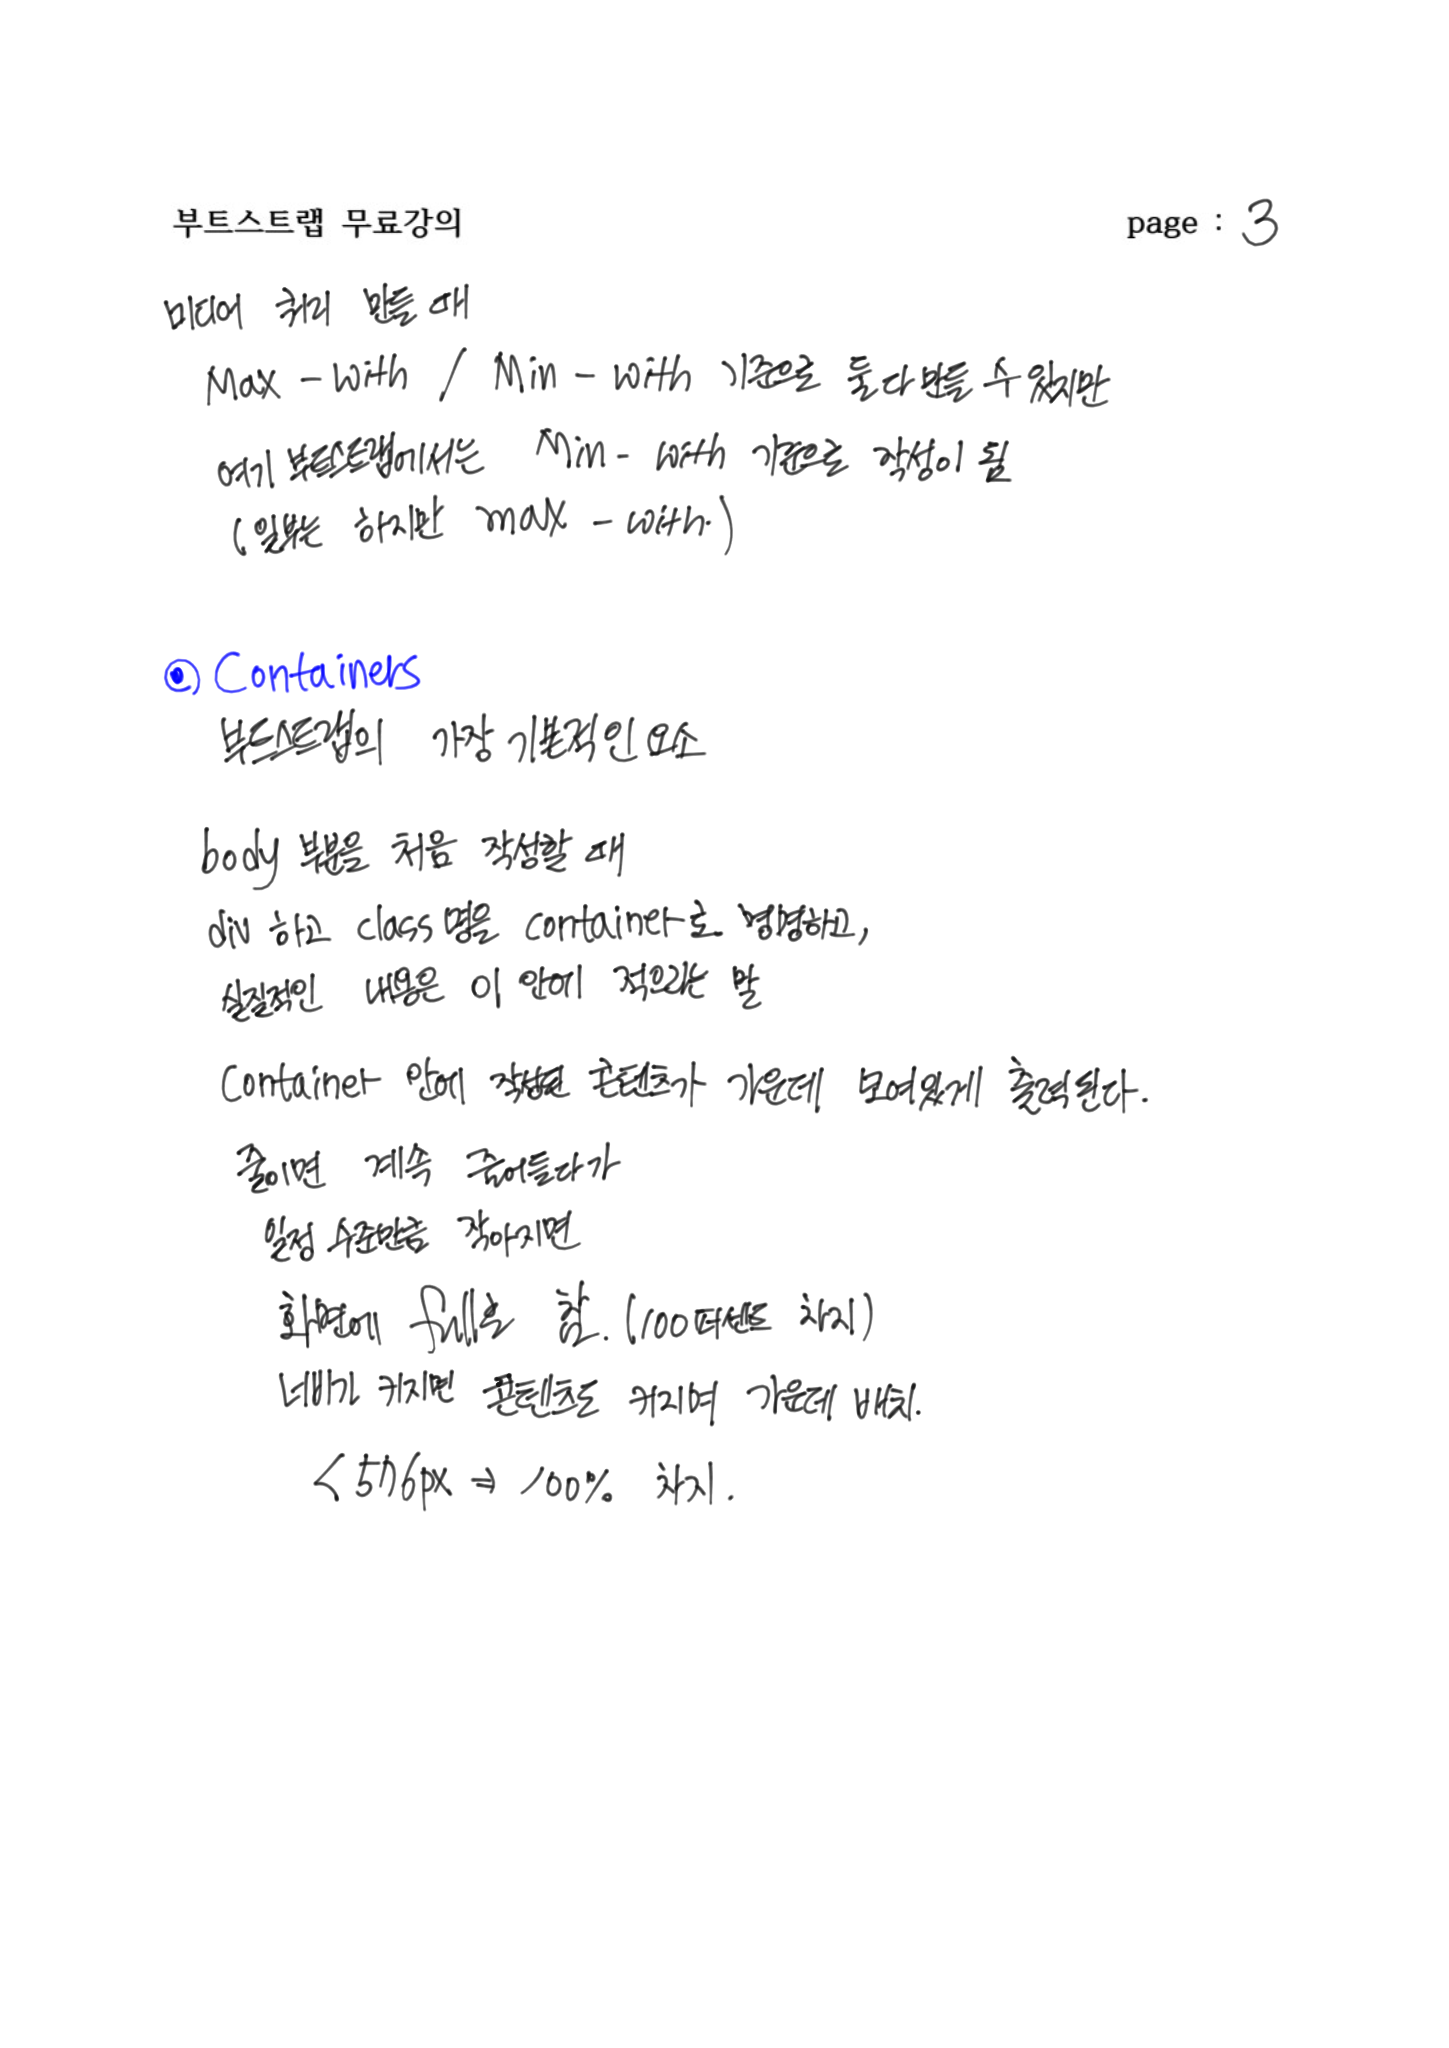 부트스트랩 무료강의
page : 3
미디어 쿼리 만들 때
Max - with / Min - with 기준으로 둘 다 만들 수 있지만
여기 부트스트랩에서는 Min - with 기준으로 작성이 됨
(일부는 하지만 max - with.)
◉ Containers
부트스트랩의 가장 기본적인 요소
body 부분을 처음 작성할 때
div 하고 class명을 container로 명명하고,
실질적인 내용은 이 안에 적으라는 말
Container 안에 작성된 콘텐츠가 가운데 모여있게 출력된다.
줄이면 계속 줄어들다가
일정 수준만큼 작아지면
화면에 full로 참. (100퍼센트 차지)
너비가 커지면 콘텐츠도 커지며 가운데 배치.
< 576px ⇒ 100% 차지.